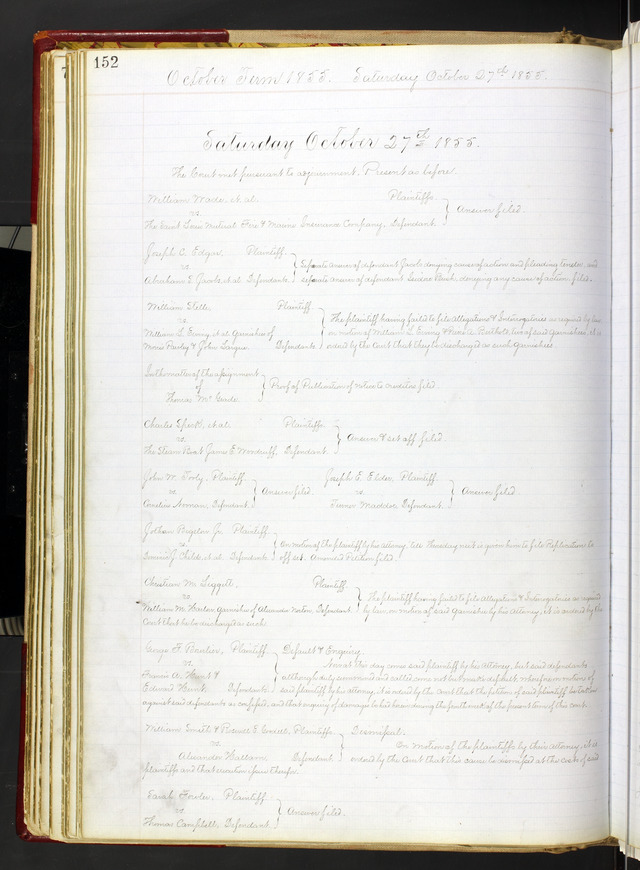 152
October Term 1855. Saturday October 27th 1855.
Saturday October 27th 1855.
The Court met pursuant to adjournment. Present as before.
William Wade, et al. Plaintiffs
vs. Answer filed.
The Saint Louis Mutual Fire & Marine Insurance Company, Defendant.
Joseph C. Edgar, Plaintiff
vs. Separate answer of defendant Jacob denying cause of action and pleading tender, and
Abraham S. Jacobs, et al. Defendants. separate answer of defendant denying any cause of action, filed.
William Plaintiff
vs. The plaintiff having failed to file allegations & Interrogatories as required by law
William L. Ewing, et al. Garnishees of on motion of William L. Ewing & two of said Garnishees, it is
& John Defendants. ordered by the Court that they be discharged as such garnishees.
In the matter of the assignment
of Proof of Publication of notice to creditors filed.
Thomas Mc
Charles et al. Plaintiffs.
vs. Answer & set off filed.
The Steam Boat James E. Woodruff, Defendant.
John W. Plaintiff. Joseph E. Elder, Plaintiff.
vs. Answer filed. vs. Answer filed.
Cornelius Defendant. Maddox, Defendant.
Bigelow Jr. Plaintiff
vs. On motion of the plaintiff by his attorney, till Thursday next is given him to file Replication to
J. Child, et al. Defendants. off set. Amended Petition filed.
Christian M. Liggett, Plaintiff.
vs. The plaintiff having failed to file Allegations & Interrogatories as required
William M. garnishee of Alexander Defendant by law, on motion of said Garnishee by his Attorney, it is ordered by the
Court that he be discharged as such.
George F. Plaintiff Default & Enquiry.
vs. Now at this day comes said plaintiff by his Attorney, but said defendants
Francis A. Hunt & although duly summoned and called come not but make default, wherefore on motion of
Edward Hunt, Defendants. said plaintiff by his attorney, it is ordered by the Court that the petition of said plaintiff be taken
against said defendants as confessed, and that enquiry of damages be had herein during the fourth week of the present term of this court.
William Smith & E. Plaintiffs Dismissed.
vs. On motion of the plaintiffs by their attorney, it is
Alexander Defendant ordered by the Court that this cause be dismissed at the costs of said
plaintiffs and that execution issue therefor.
Sarah Fowler, Plaintiff
vs. Answer filed.
Thomas Campbell, Defendant.